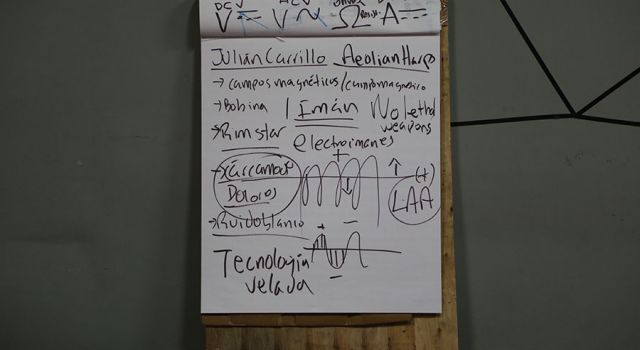 DC V AC V Ohms Resist. D
V V Ω A
Julián Carrillo Aeolian Harp
→ campos magnéticos/campo magnético
→ Bobina Imán No lethal weapons
→ Rimstar electroimanes
→ Xárcamo Dolores
+ (+)
LAA
→ Ruido blanco
+ −
Tecnología velada